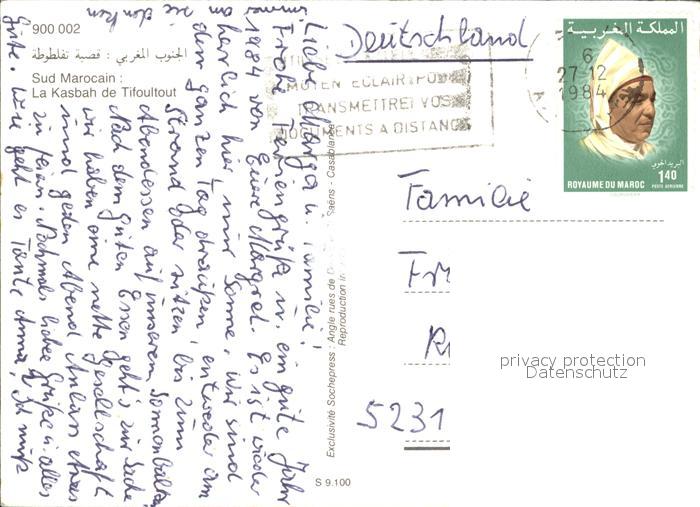 900 002
الجنوب المغربي : قصبة تفلطوطة
Sud Marocain :
La Kasbah de Tifoultout
Liebe Marga u. Familie!
Frohe Feriengrüße u. ein gute Jahr
1984 von Eurer Margret. Es ist wieder
herrlich hier, nur Sonne, wir sind
den ganzen Tag draußen, entweder am
Strand oder sitzen bis zum
Abendessen auf unserem Sonnenbalkon
Nach dem guten Essen geht's zur Sache
wir haben eine nette Gesellschaft
und jeden Abend Anlass etwas
zu feiern. Nochmals liebe Grüße u. alles
Gute. Wie geht es Tante Anna, Ich muß
immer
an sie denken
Exclusivité Sochepress : Angle rues de Saëns - Casablanca
Reproduction
S 9.100
Deutschland
MOYEN ECLAIR POUR
TRANSMETTRE VOS
DOCUMENTS A DISTANCE
6
27-12
1984
المملكة المغربية
البريد الجوي
1,40
ROYAUME DU MAROC POSTE AERIENNE
Familie
5231
privacy protection
Datenschutz